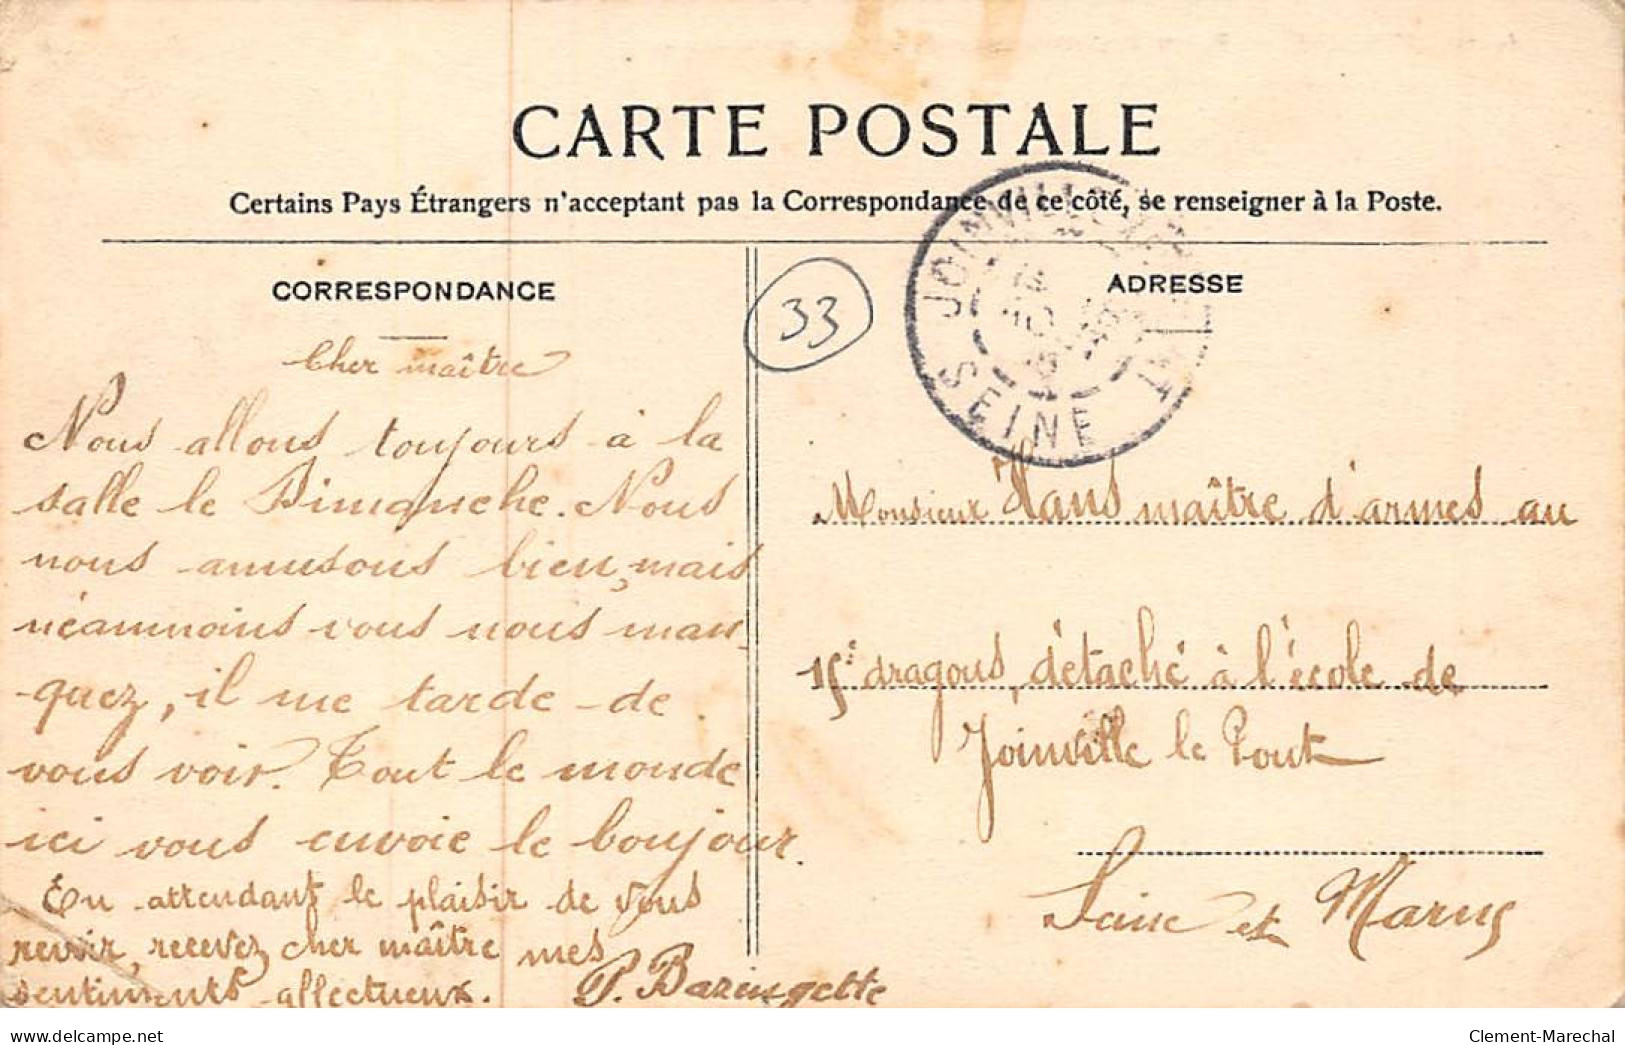 CARTE POSTALE
Certains Pays Étrangers n'acceptent pas la Correspondance de ce côté, se renseigner à la Poste.
CORRESPONDANCE
Cher maître
Nous allons toujours à la
salle le Dimanche. Nous
nous amusons bien, mais
néammoins vous nous man-
quez, il me tarde de
vous voir. Tout le monde
ici vous envoie le boujour.
En attendant le plaisir de vous
revoir, recevez cher maître mes
sentiments affectueux.
P. Bazingette
33
JOINVILLE
SEINE
ADRESSE
Monsieur Hans maître d'armes au
15e dragons, détaché à l'école de
Joinville le Pont
Seine et Marne
delcampe.net
Clement-Marechal